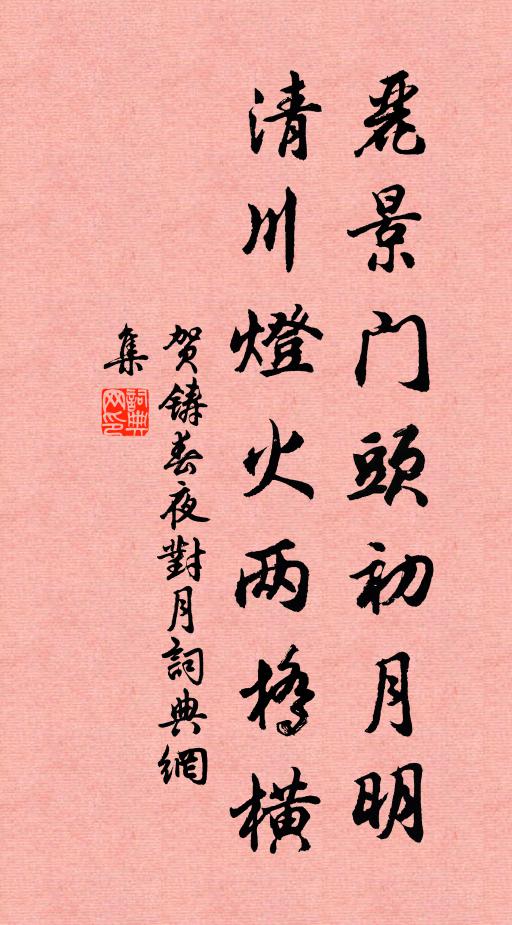 麗景门頭初月明
清川燈火两橋橫
贺鑄春夜對月詞典網
集
詞典网印